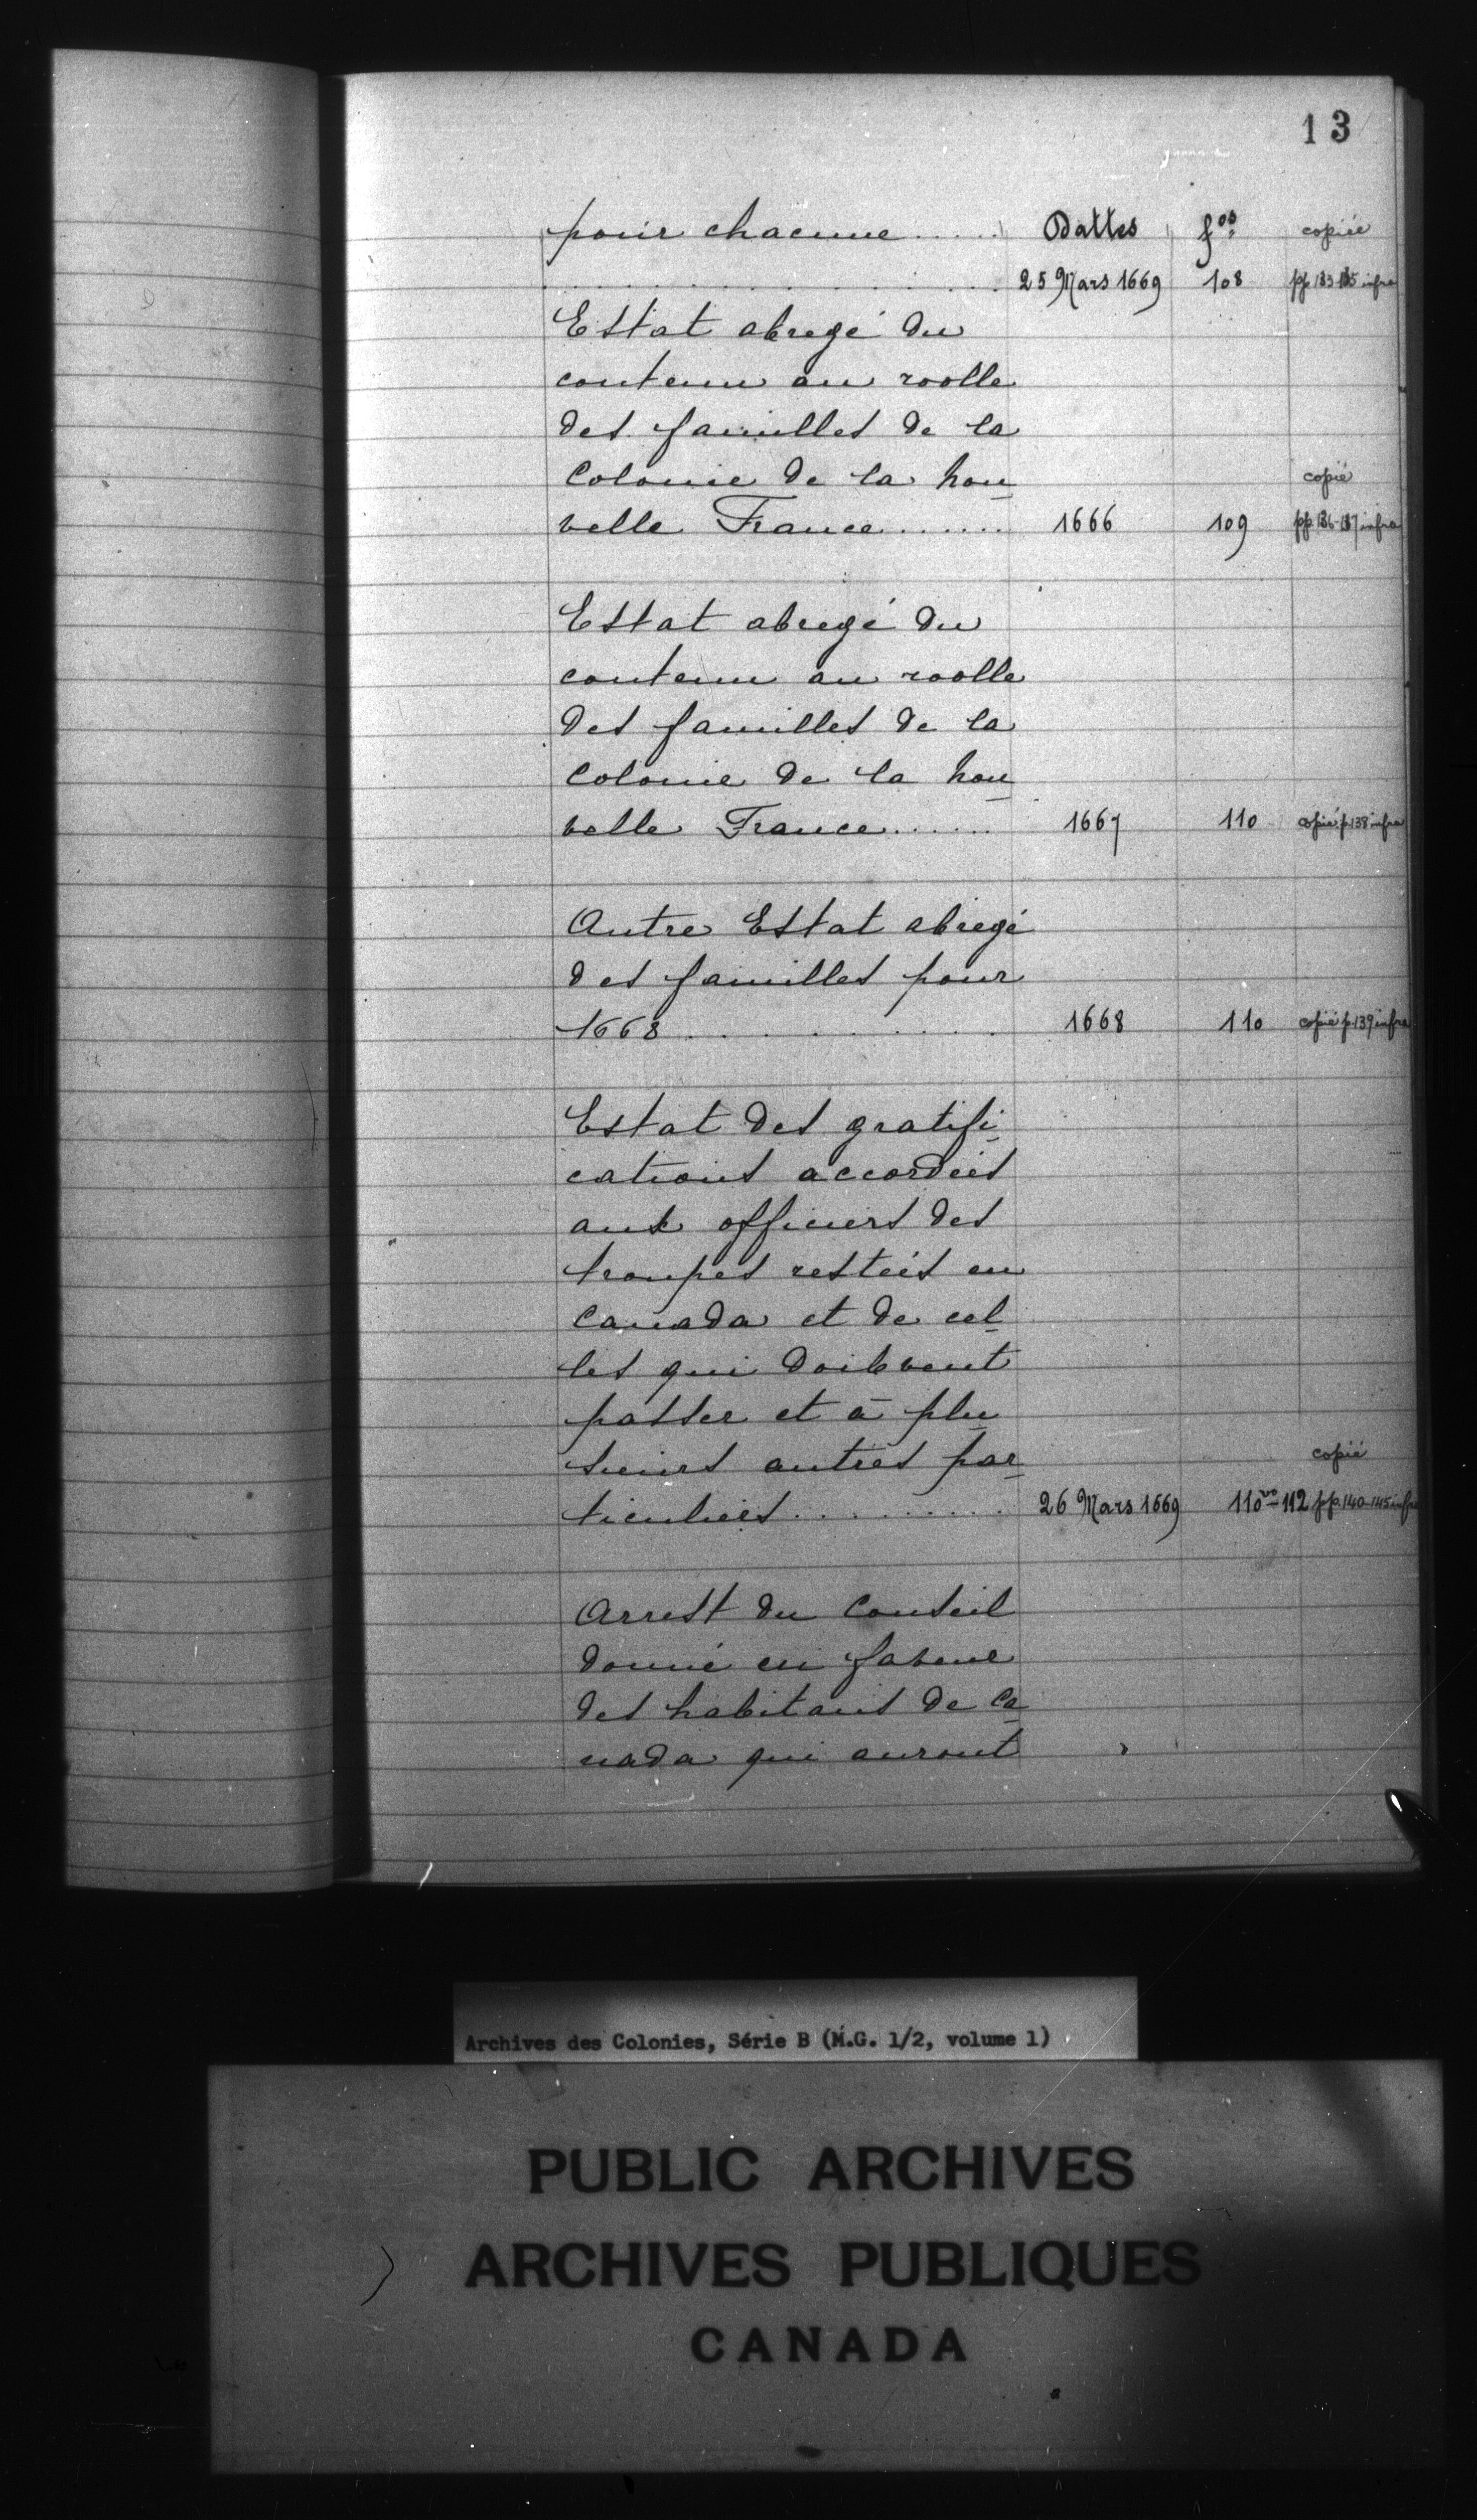 13
pour chacune ..... Dattes fos copiée
..................... 25 Mars 1669 108 pp. 133-135 infra
Estat abregé du
contenu au roolle
des familles de la
Colonie de la nou
copié
velle France ....... 1666 109 pp. 136-137 infra
Estat abregé du
contenu au roolle
des familles de la
Colonie de la nou
velle France ....... 1667 110 copié p. 138 infra
Autre Estat abregé
des familles pour
1668 .............. 1668 110 copié p. 139 infra
Estat des gratifi
cations accordées
aux officiers des
troupes restéés en
Canada et de cel
les qui doibvent
passer et à plu
sieurs autres par
copié
ticuliers .......... 26 Mars 1669 110vo-112 pp. 140-145 infra
Arrest du Conseil
donné en faveur
des habitans de Ca
nada qui auront
Archives des Colonies, Série B (M.G. 1/2, volume 1)
PUBLIC ARCHIVES
ARCHIVES PUBLIQUES
CANADA